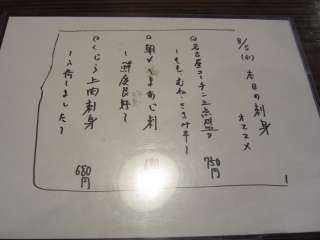 8/5(水) 本日の刺身
オススメ
○名古屋コーチン三点盛り
〜もも、むね、ささみ〜
750円
○朝〆しまあじ刺
〜鮮度良好〜
○くじら上肉刺身
〜入荷しました〜
680円